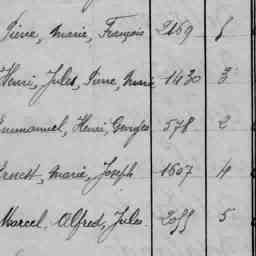 Pierre, Marie, François 2169 1
Henri, Jules, Pierre, Marie 1430 3
Emmanuel, Henri, Georges 578 2
Ernest, Marie, Joseph 1607 4
Marcel, Alfred, Jules 2055 5